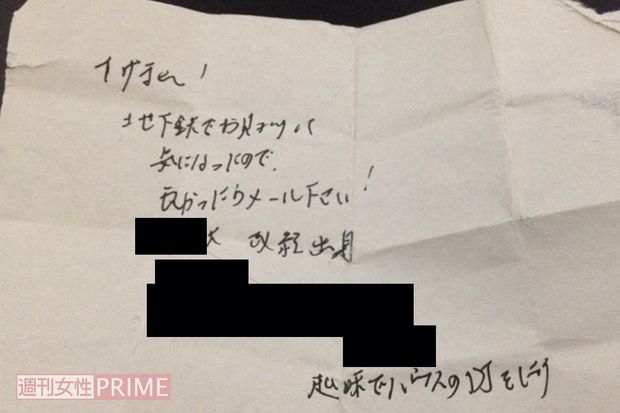 すみません！
地下鉄でお見かけして
気になったので、
良かったらメール下さい！
大 政経出身
趣味でハウスのDJをしてます
週刊女性PRIME